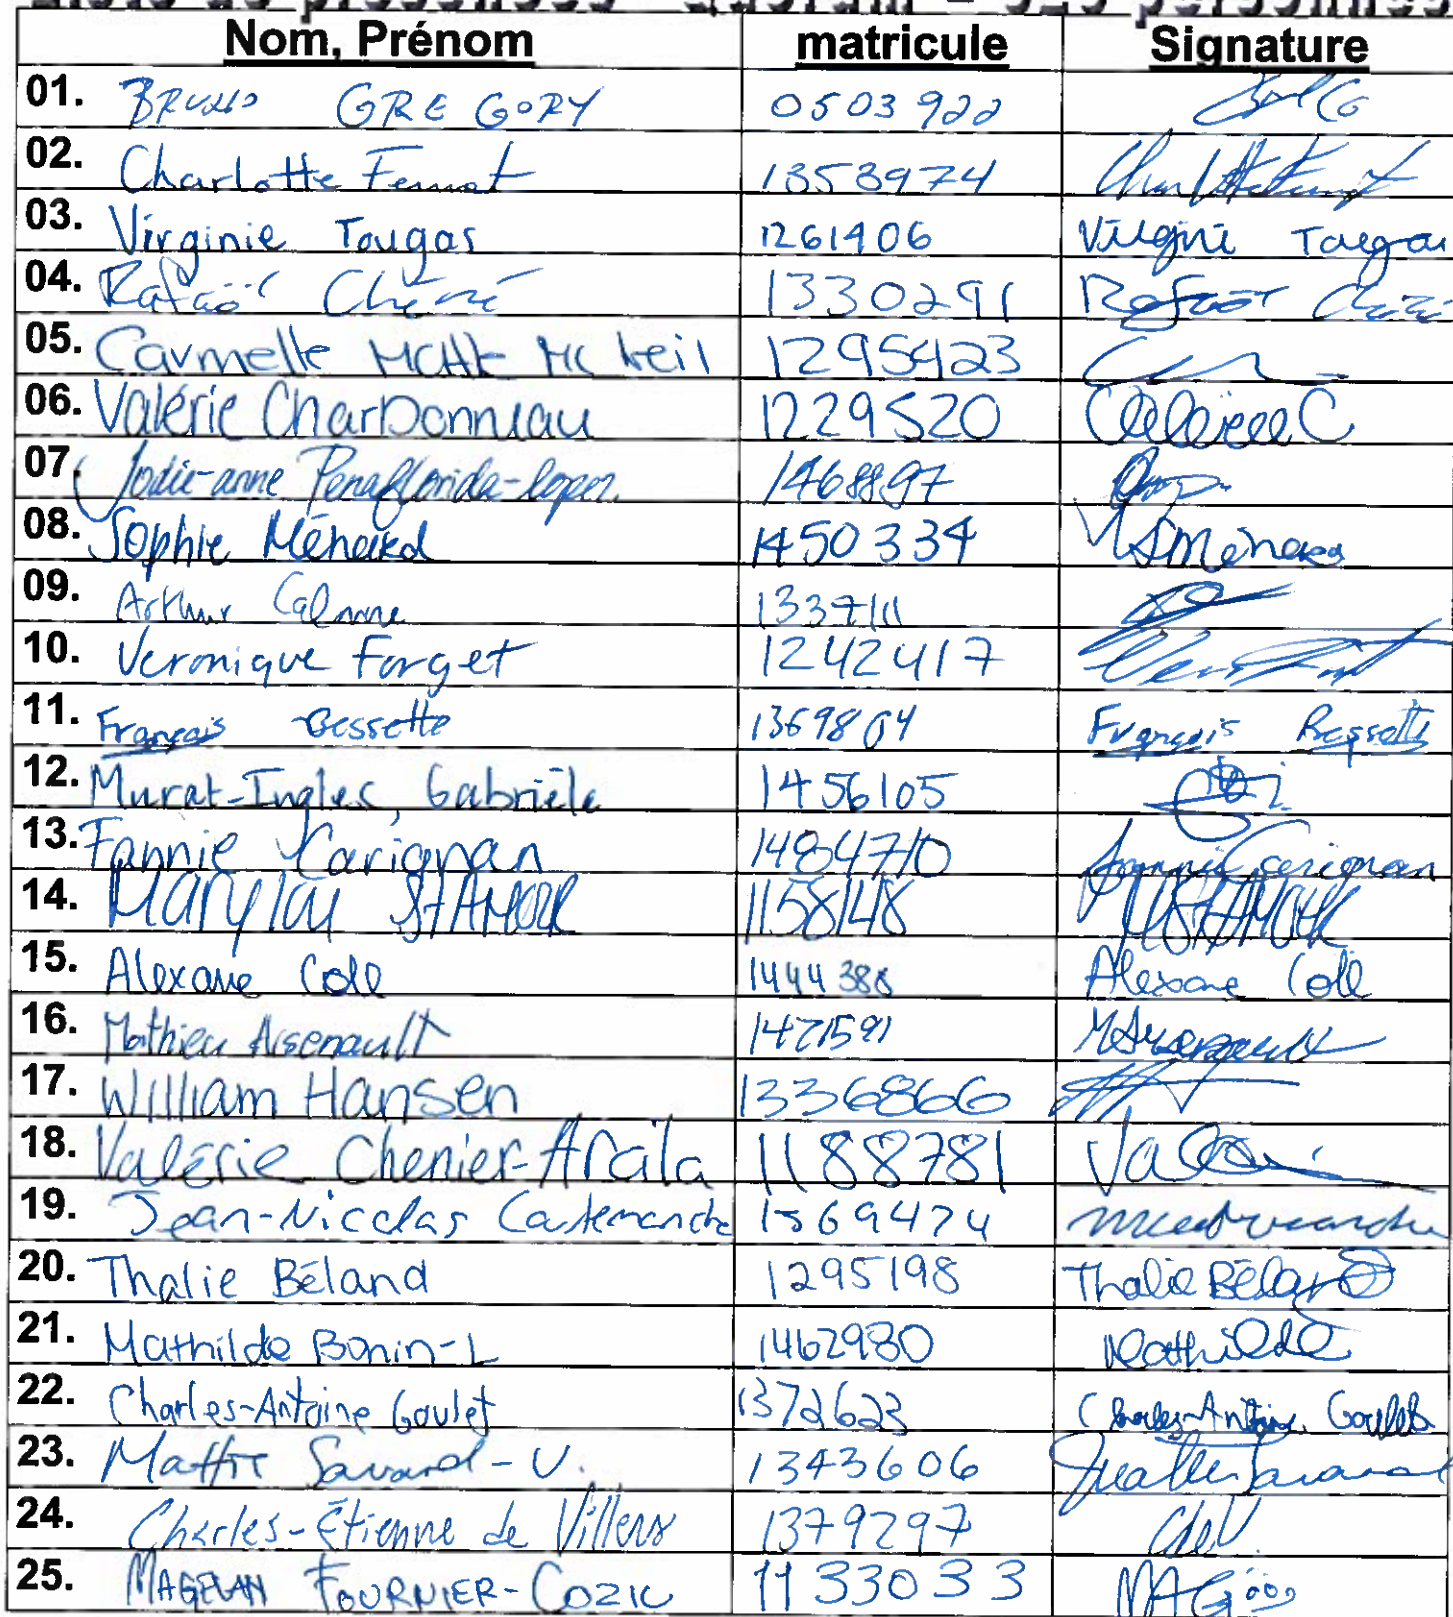 Liste de présences - Quorum - 326 personnes
Nom, Prénom matricule Signature
01. Bruno GREGORY 0503922
02. Charlotte 1353974
03. Virginie Tougas 1261406 Virginie Tougas
04. Rafaël Chéné 1330291
05. Carmelle Mc Neil 1295423
06. Valérie Charbonneau 1229520
07. Jodie-anne Penaflorida-lopez 1468897
08. Sophie Ménard 1450334 S Ménard
09. Arthur 1337111
10. Veronique Forget 1242417
11. François Bessette 1369804 François Bessette
12. Murat-Ingles, Gabrièle 1456105
13. Fannie Carignan 1484710 Fannie Carignan
14. Marylou St Amour 1158148
15. Alexane Coll 1444388 Alexane Coll
16. Mathieu Arsenault 1471591 M Arsenault
17. William Hansen 1336866
18. Valérie Chenier-Arcila 1188781
19. Jean-Nicolas 1569474
20. Thalie Béland 1295198 Thalie Béland
21. Mathilde Bonin-L 1462980 Mathilde
22. Charles-Antoine Goulet 1372623 Charles-Antoine Goulet
23. Savard-V. 1343606
24. Charles-Étienne de Villers 1379297 CdeV
25. MAGELAN FOURNIER-COZIC 1133033 MAG